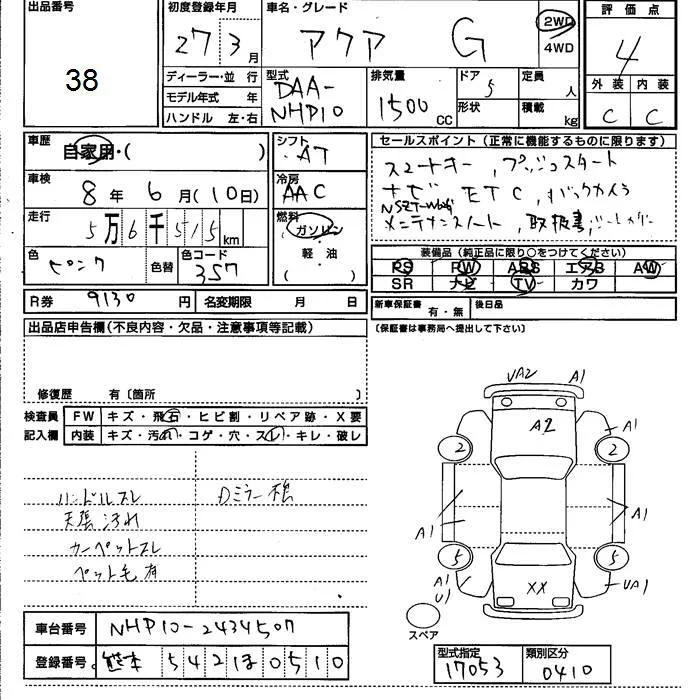 出品番号
38
初度登録年月
27 3月
車名・グレード
アクア G
2WD
4WD
評価点
4
外装 内装
C C
ディーラー・並 行
モデル年式 年
ハンドル 左・右
型式
DAA-
NHP10
排気量
1500 CC
ドア
5
形状
定員
人
積載
kg
車歴
自家用・( )
車検
8年 6月(10日)
走行
5万6千515km
色
ピンク
色替
色コード
3S7
シフト
AT
冷房
AAC
燃料
ガソリン
軽油
( )
セールスポイント (正常に機能するものに限ります)
スマートキー, プッシュスタート
ナビ ETC, バックカメラ
メンテナンスノート, 取扱書,
装備品(純正品に限り○をつけてください)
PS PW ABS エアB AW
SR ナビ TV カワ
R券 9130円
名変期限 月 日
新車保証書
有・無
後日品
(保証書は事務局へ提出して下さい)
出品店申告欄(不良内容・欠品・注意事項等記載)
修復歴 有〔箇所 〕
検査員 FW キズ・飛石・ヒビ割・リペア跡・X要
記入欄 内装 キズ・汚れ・コゲ・穴・スレ・キレ・破レ
ハンドルスレ
天張汚れ
カーペットスレ
ペット毛有
Dミラー
UA2 A1
A2
A1
2 2
A1 A1
5 5
A1
U1
XX
UA1
スペア
車台番号 NHP10-2434507
登録番号 熊本 542 ほ 0510
型式指定
17053
類別区分
0410